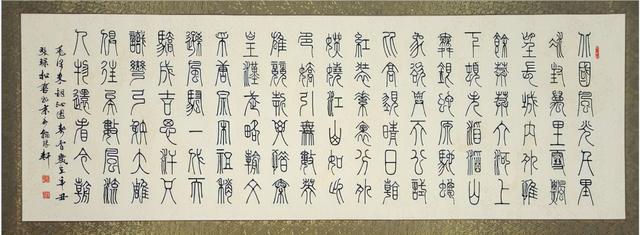 北國風光千里
冰封萬里雪飄
望長城內外惟
餘莽莽大河上
下頓失滔滔山
舞銀蛇原馳蠟
象欲與天公試
比高須晴日看
紅裝素裹分外
妖嬈江山如此
多嬌引無數英
雄競折腰惜秦
皇漢武略輸文
采唐宗宋祖稍
遜風騷一代天
驕成吉思汗只
識彎弓射大雕
俱往矣數風流
人物還看今朝
毛澤東詞沁園春雪歲在辛丑